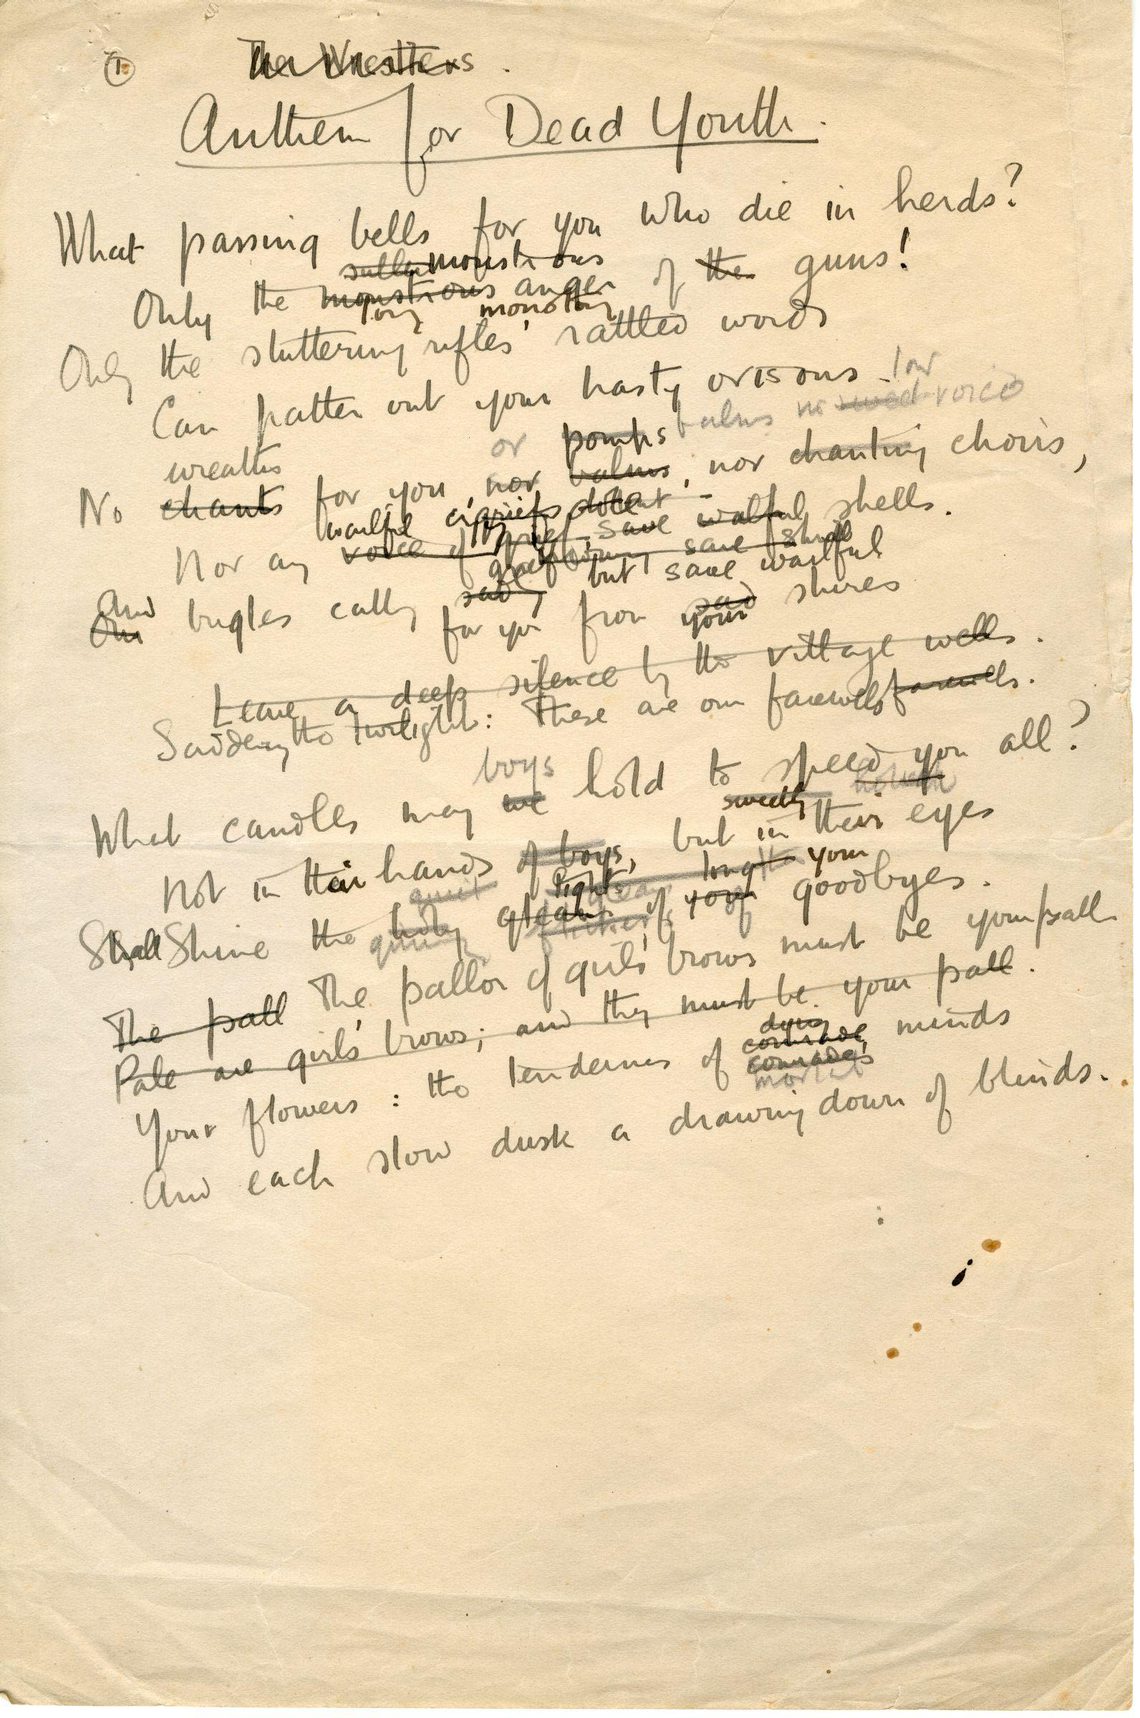 1.
Anthem for Dead Youth.
What passing bells for you who die in herds?
sullen monstrous
Only the monstrous anger of the guns!
Only the stuttering rifles' rattled words
Can patter out your hasty orisons.
low
balms no sweet voice
wreaths or pomps
No chants for you, nor balms, nor chanting choirs,
wailful
Nor any voice of grief, save wailful shells.
save shrill
but save wailful
And bugles calling sadly
Our for you from your sad shires
Leave a deep silence by the village wells.
Saddening the twilight: These are our farewells farewells.
boys
What candles may we hold to speed you all?
Not in their hands of boys, but in their eyes
quiet lights long your
Shall Shine the holy gleams of your goodbyes.
The pall The pallor of girls' brows must be your pall
Pale are girls' brows; and they must be your pall.
comrades'
Your flowers: the tenderness of comrades' minds
mortal
And each slow dusk a drawing down of blinds.